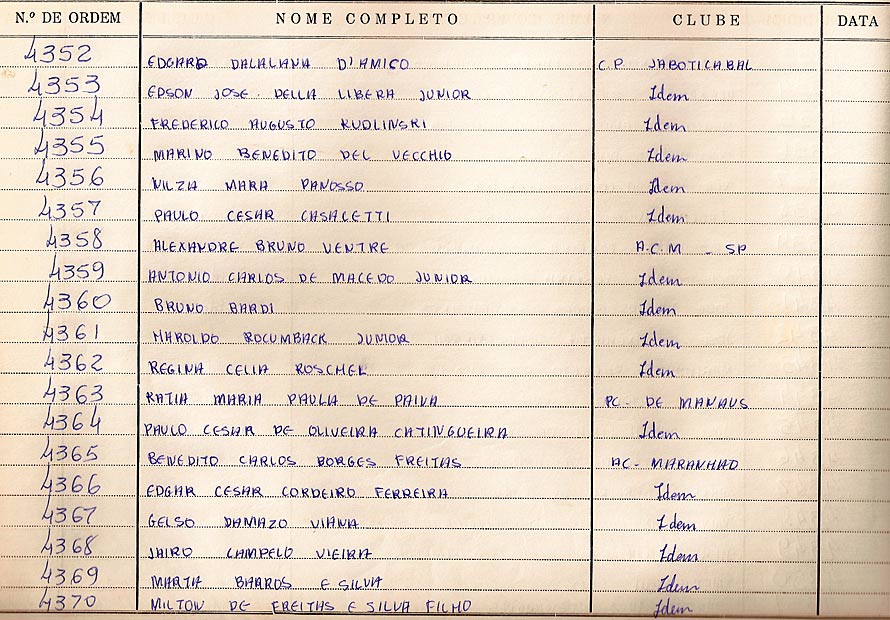 N.º DE ORDEM NOME COMPLETO CLUBE DATA
4352 EDGARD DALALANA D'AMICO C.P. JABOTICABAL
4353 EDSON JOSE DELLA LIBERA JUNIOR Idem
4354 FREDERICO AUGUSTO KUDLINSKI Idem
4355 MARINO BENEDITO DEL VECCHIO Idem
4356 NILZA MARA PANOSSO Idem
4357 PAULO CESAR CASACETTI Idem
4358 ALEXANDRE BRUNO VENTRE A.C.M - SP
4359 ANTONIO CARLOS DE MACEDO JUNIOR Idem
4360 BRUNO BARDI Idem
4361 HAROLDO ROCUMBACK JUNIOR Idem
4362 REGINA CELIA ROSCHEL Idem
4363 KATIA MARIA PAULA DE PAIVA PC - DE MANAUS
4364 PAULO CESAR DE OLIVEIRA CATINGUEIRA Idem
4365 BENEDITO CARLOS BORGES FREITAS AC - MARANHAO
4366 EDGAR CESAR CORDEIRO FERREIRA Idem
4367 GELSO DAMAZO VIANA Idem
4368 JAIRO CAMPELO VIEIRA Idem
4369 BARROS E SILVA Idem
4370 MILTON DE FREITAS E SILVA FILHO Idem